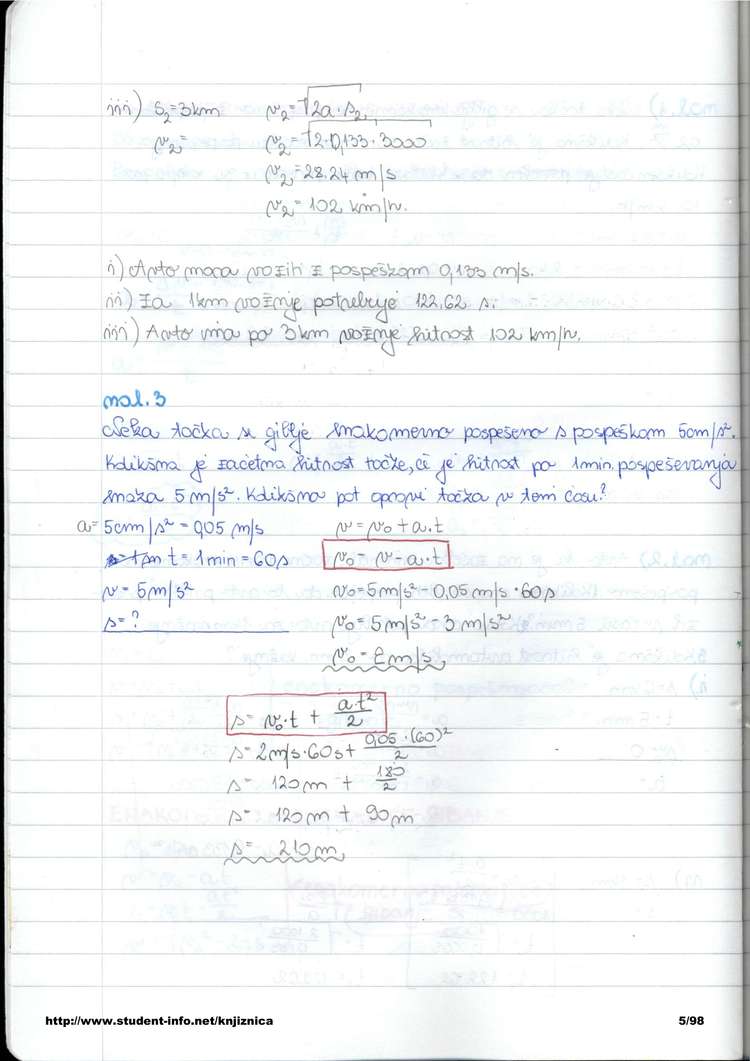 iii) s₂=3km v₂=√2a·s₂
v₂= v₂=√2·0,133·3000
v₂=28,24 m/s
v₂=102 km/h.
i) Avto mora voziti z pospeškom 0,133 m/s.
ii) Za 1km vožnje potrebuje 122,62 s.
iii) Avto ima po 3km vožnje hitrost 102 km/h.
nal.3
Neka točka se giblje enakomerno pospešeno s pospeškom 5cm/s².
Kolikšna je začetna hitrost točke, če je hitrost po 1min. pospeševanja
enaka 5m/s². Kolikšno pot opravi točka v tem času?
a= 5cm/s² = 0,05 m/s v=v₀+a·t
t=1min=60s v₀=v-a·t
v=5m/s² v₀=5m/s²-0,05m/s·60s
s=? v₀=5m/s²-3m/s²
v₀=2m/s
s=v₀·t + a·t²/2
s=2m/s·60s+ 0,05·(60)²/2
s= 120m + 180/2
s= 120m + 90m
s= 210m
http://www.student-info.net/knjiznica 5/98